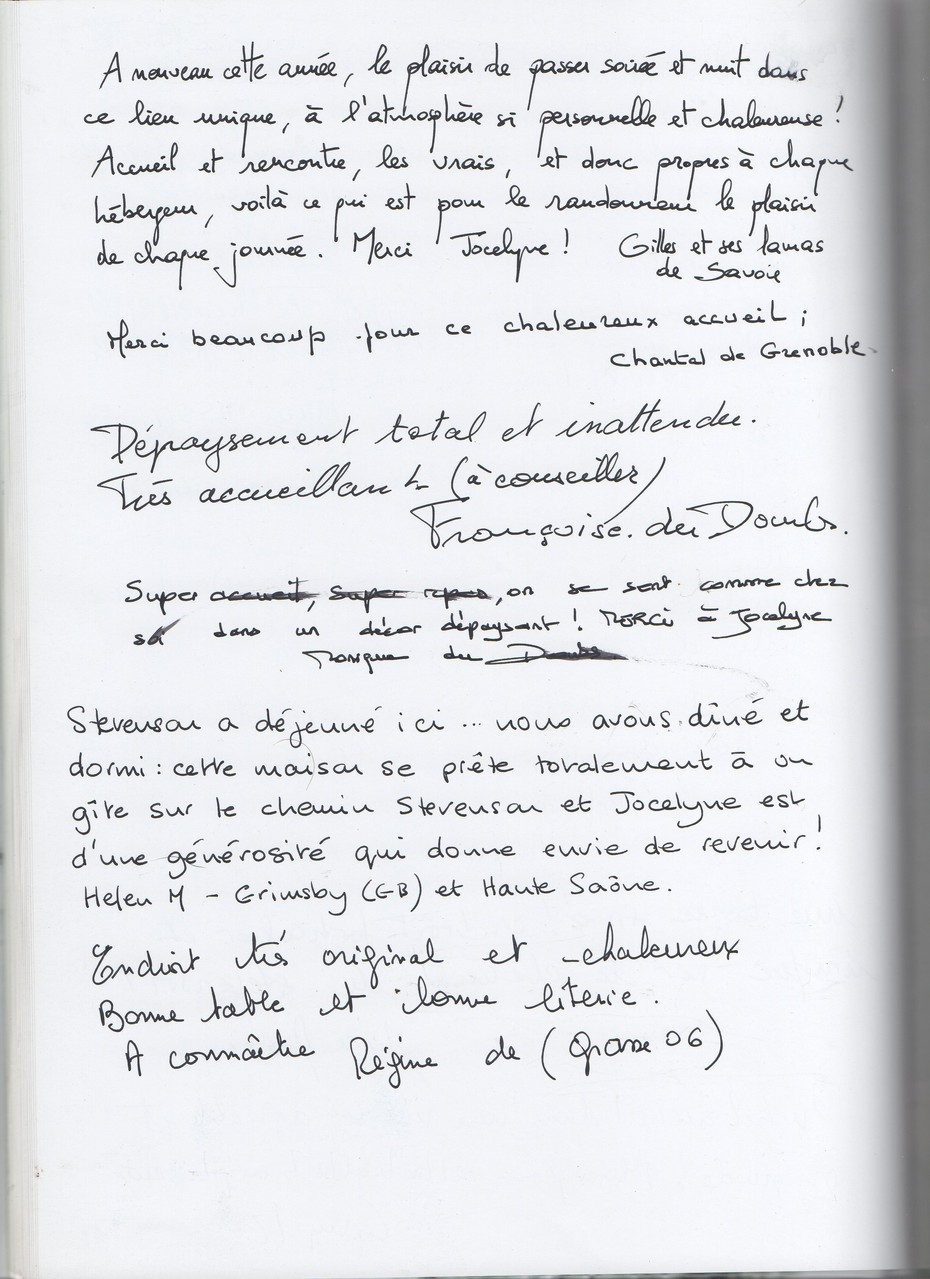 A nouveau cette année, le plaisir de passer soirée et nuit dans
ce lieu unique, à l'atmosphère si personnelle et chaleureuse !
Accueil et rencontre, les vrais, et donc propres à chaque
hébergeur, voilà ce qui est pour le randonneur le plaisir
de chaque journée. Merci Jocelyne ! Gilles et ses lamas
de Savoie
Merci beaucoup pour ce chaleureux accueil ;
Chantal de Grenoble.
Dépaysement total et inattendu.
Très accueillant (à conseiller)
Françoise. du Doubs.
Super accueil, super repas, on se sent comme chez
soi dans un décor dépaysant ! MERCI à Jocelyne
Monique du Doubs
Stevenson a déjeuné ici ... nous avons dîné et
dormi : cette maison se prête totalement à un
gîte sur le chemin Stevenson et Jocelyne est
d'une générosité qui donne envie de revenir !
Helen M - Grimsby (GB) et Haute Saône.
Endroit très original et chaleureux
Bonne table et bonne literie.
A connaître Régine de (Grasse 06)